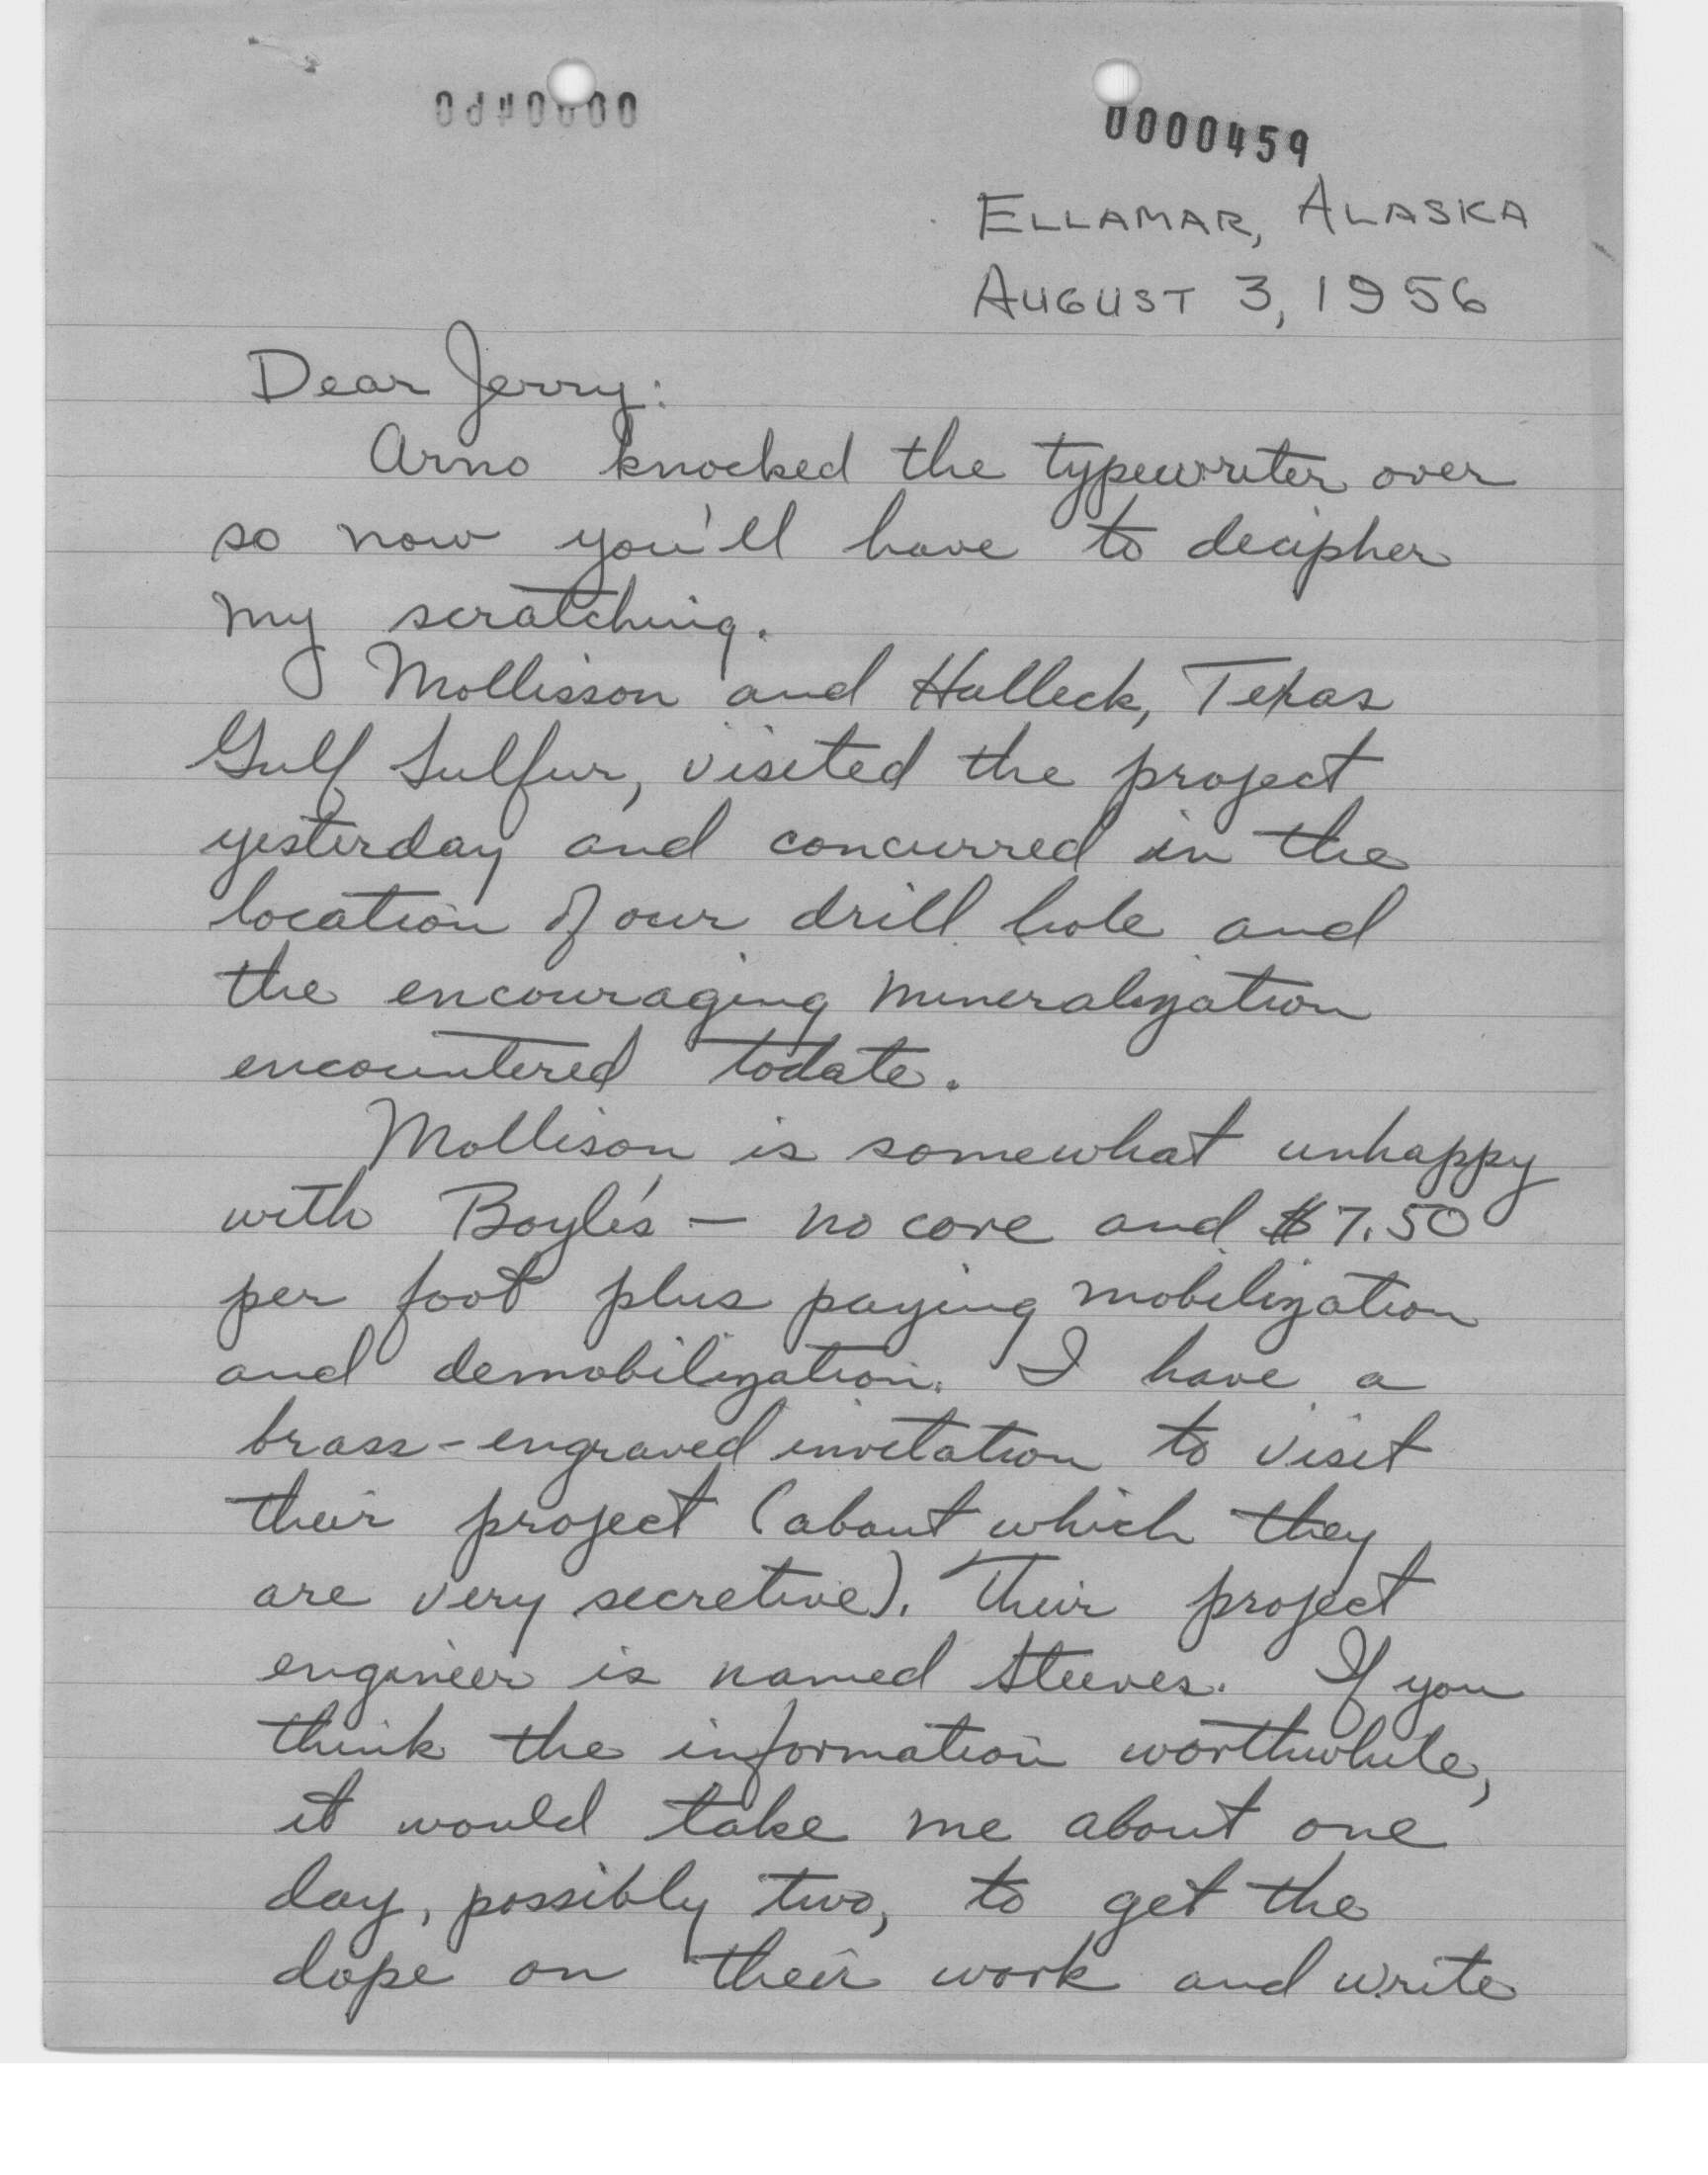 0000459
ELLAMAR, ALASKA
AUGUST 3, 1956
Dear Jerry:
Arno knocked the typewriter over
so now you'll have to decipher
my scratching.
Mollisson and Halleck, Texas
Gulf Sulfur, visited the project
yesterday and concurred in the
location of our drill hole and
the encouraging mineralization
encountered todate.
Mollison is somewhat unhappy
with Boyle's — no core and $7.50
per foot plus paying mobilization
and demobilization. I have a
brass-engraved invitation to visit
their project (about which they
are very secretive). Their project
engineer is named Steeves. If you
think the information worthwhile,
it would take me about one
day, possibly two, to get the
dope on their work and write